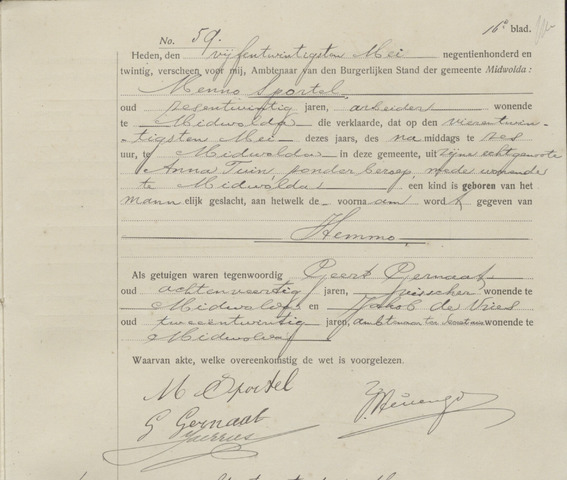 16e blad.
No. 59.
Heden, den vijfentwintigsten Mei negentienhonderd en
twintig, verscheen voor mij, Ambtenaar van den Burgerlijken Stand der gemeente Midwolda:
Menno Sportel,
oud zesentwintig jaren, arbeider wonende
te Midwolda die verklaarde, dat op den vierentwin-
tigsten Mei dezes jaars, des na middags te zes
uur, te Midwolda in deze gemeente, uit zijne echtgenoote
Anna Tuin, zonder beroep, mede wonende
te Midwolda een kind is geboren van het
mann elijk geslacht, aan hetwelk de voorna am word t gegeven van
Hemmo,
Als getuigen waren tegenwoordig Geert Gernaat,
oud achtenveertig jaren, visscher wonende te
Midwolda en Jakob de Vries
oud tweeentwintig jaren, ambtenaar ter secretarie wonende te
Midwolda
Waarvan akte, welke overeenkomstig de wet is voorgelezen.
M Sportel
G Gernaat
JdeVries